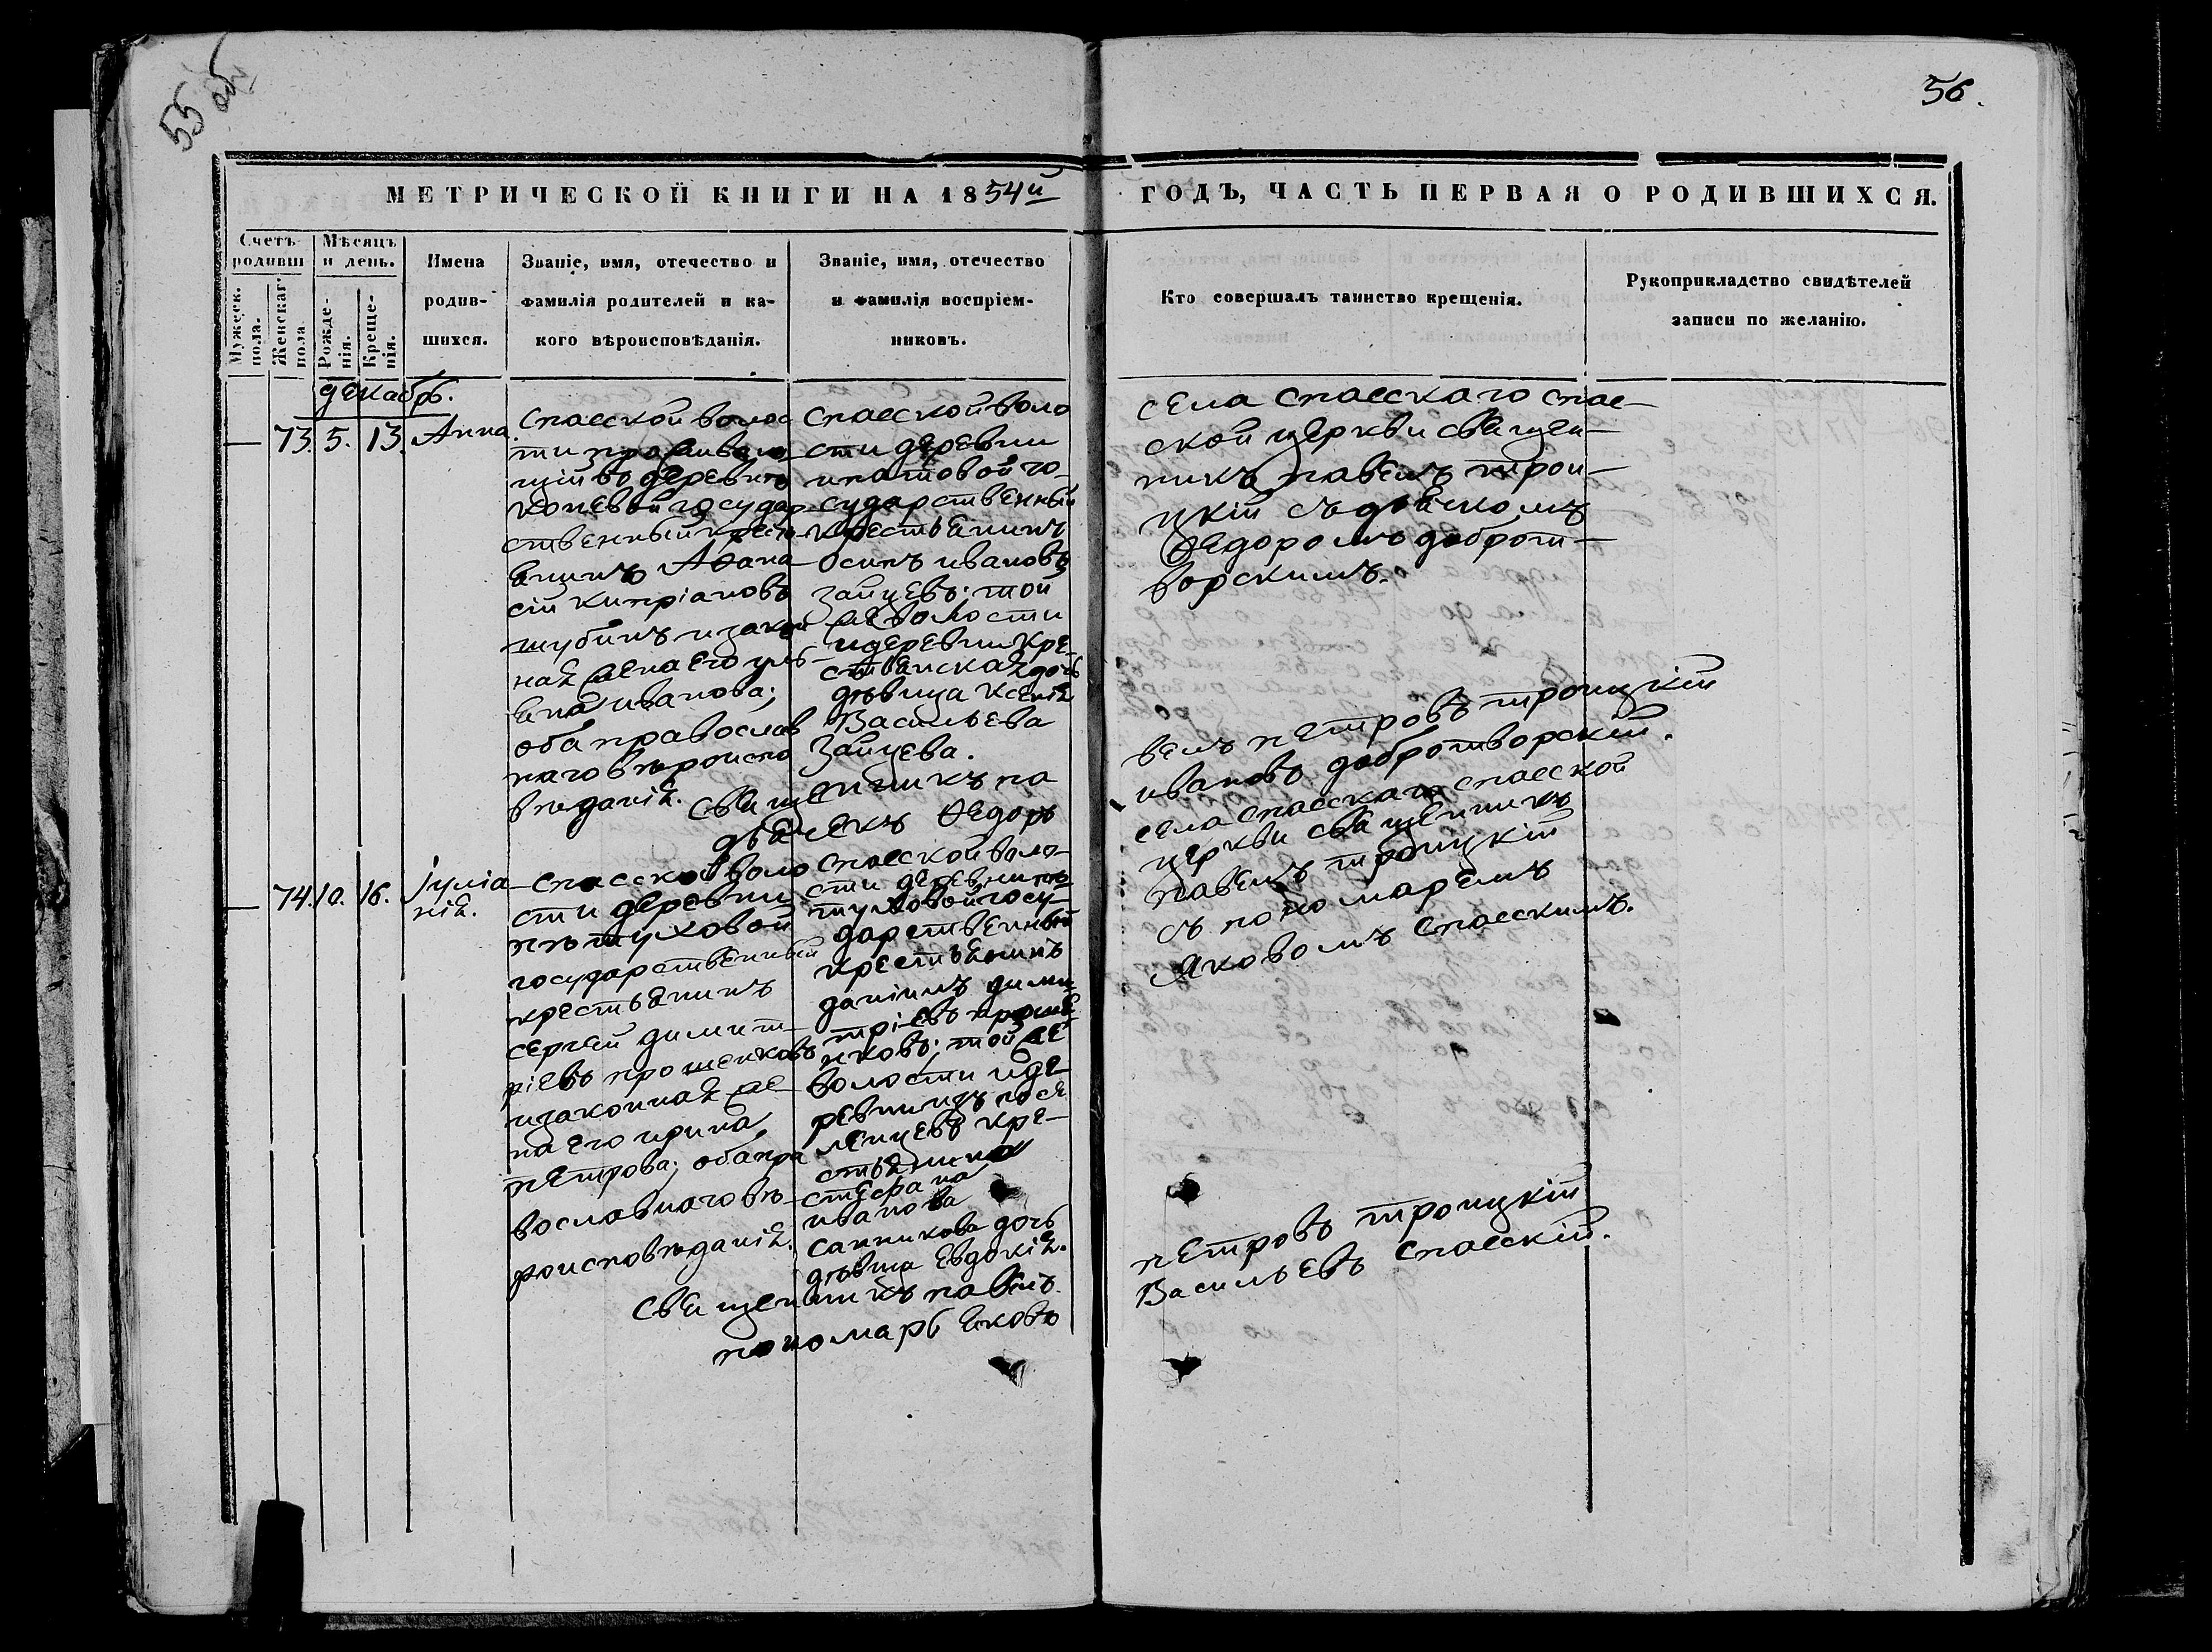 55 об
56.
МЕТРИЧЕСКОЙ КНИГИ НА 1854й
ГОДЪ, ЧАСТЬ ПЕРВАЯ О РОДИВШИХСЯ.
Счетъ родивш
Мужеск. пола.
Женскаг. пола.
Мѣсяцъ и день.
Рожде-
нія.
Креще-
нія.
Имена
родив-
шихся.
Званіе, имя, отечество и
фамилія родителей и ка-
кого вѣроисповѣданія.
Званіе, имя, отечество
и фамилія воспріем-
никовъ.
Кто совершалъ таинство крещенія.
Рукоприкладство свидѣтелей
записи по желанію.
декабрь.
73. 5. 13. Анна
Спасской волос
ти проживаю
щій въ деревнѣ
коневой государ
ственный крестья
янинъ Афана
сій Кипріановъ
шубинъ и закон
ная жена его уль
яна иванова;
оба православ
наго вѣроиспо
вѣданія.
Спасской воло
сти деревни
ипатовой го-
сударственный
крестьянинъ
Осипъ ивановъ
Зайцевъ; той
же волости
и деревни кре-
стьянская дочь
дѣвица Ксенія
Васильева
Зайцева.
села Спасскаго Спас-
ской церкви священ-
никъ павелъ трои-
цкій съ дьячкомъ
Ѳедоромъ доброт-
ворскимъ.
Священникъ па
велъ петровъ троицкій
дьячекъ Ѳедоръ
ивановъ добротворскій.
74. 10. 16. Іуліа
нія.
Спасской воло
сти деревни
пѣтуховой
государственный
крестьянинъ
сергей димит-
ріевъ прошенковъ
и законная же-
на его ирина
петрова; оба пра
вославнаго вѣ-
роисповѣданія.
Спасской воло-
сти деревни пѣ
туховой госу-
дарственный
крестьянинъ
даніилъ дими
тріевъ проше
нковъ; той же
волости и де-
ревни изъ посе
ленцевъ кре-
стьянина
стефана
иванова
Санникова дочь
дѣвица Евдокія.
села Спасскаго Спасской
церкви священникъ
павелъ троицкій
съ пономаремъ
Яковомъ Спасскимъ.
Священникъ павелъ
петровъ троицкій
пономарь Яковъ
Васильевъ Спасскій.